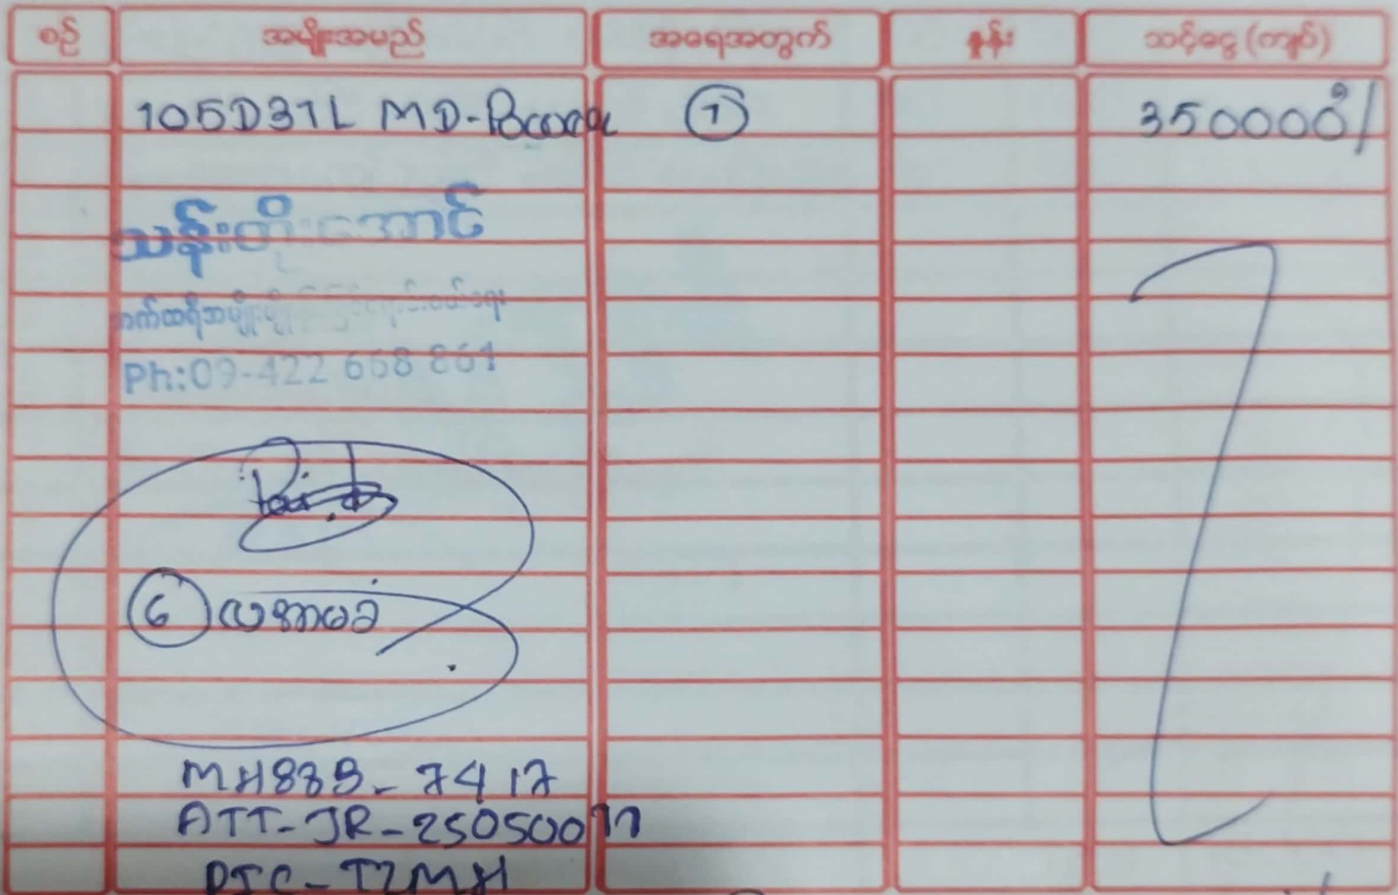 စဉ် အမျိုးအမည် အရေအတွက် နှုန်း သင့်ငွေ (ကျပ်)
105D31L MD- ① 350000/
သန်းတိုးအောင်
Ph:09-422 668 861
Paid
⑥ လအာမခံ
MH88B-7417
ATT-JR-25050011
PIC-TZMH